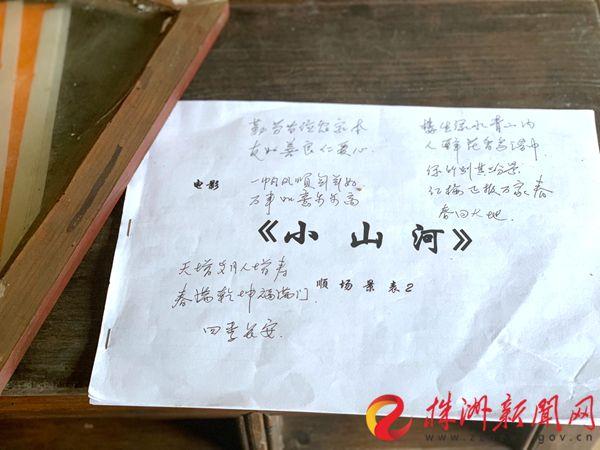 勤劳古淳忠家本
友好善良仁爱心
一帆风顺年年好
万事如意步步高
楼住绿水青山内
人醉花香鸟语中
绿竹别其三分景
红梅正报万家春
春回大地
电影
《小山河》
顺场景表2
天增岁月人增寿
春满乾坤福满门
四季长安
株洲新闻网
www.zznews.gov.cn